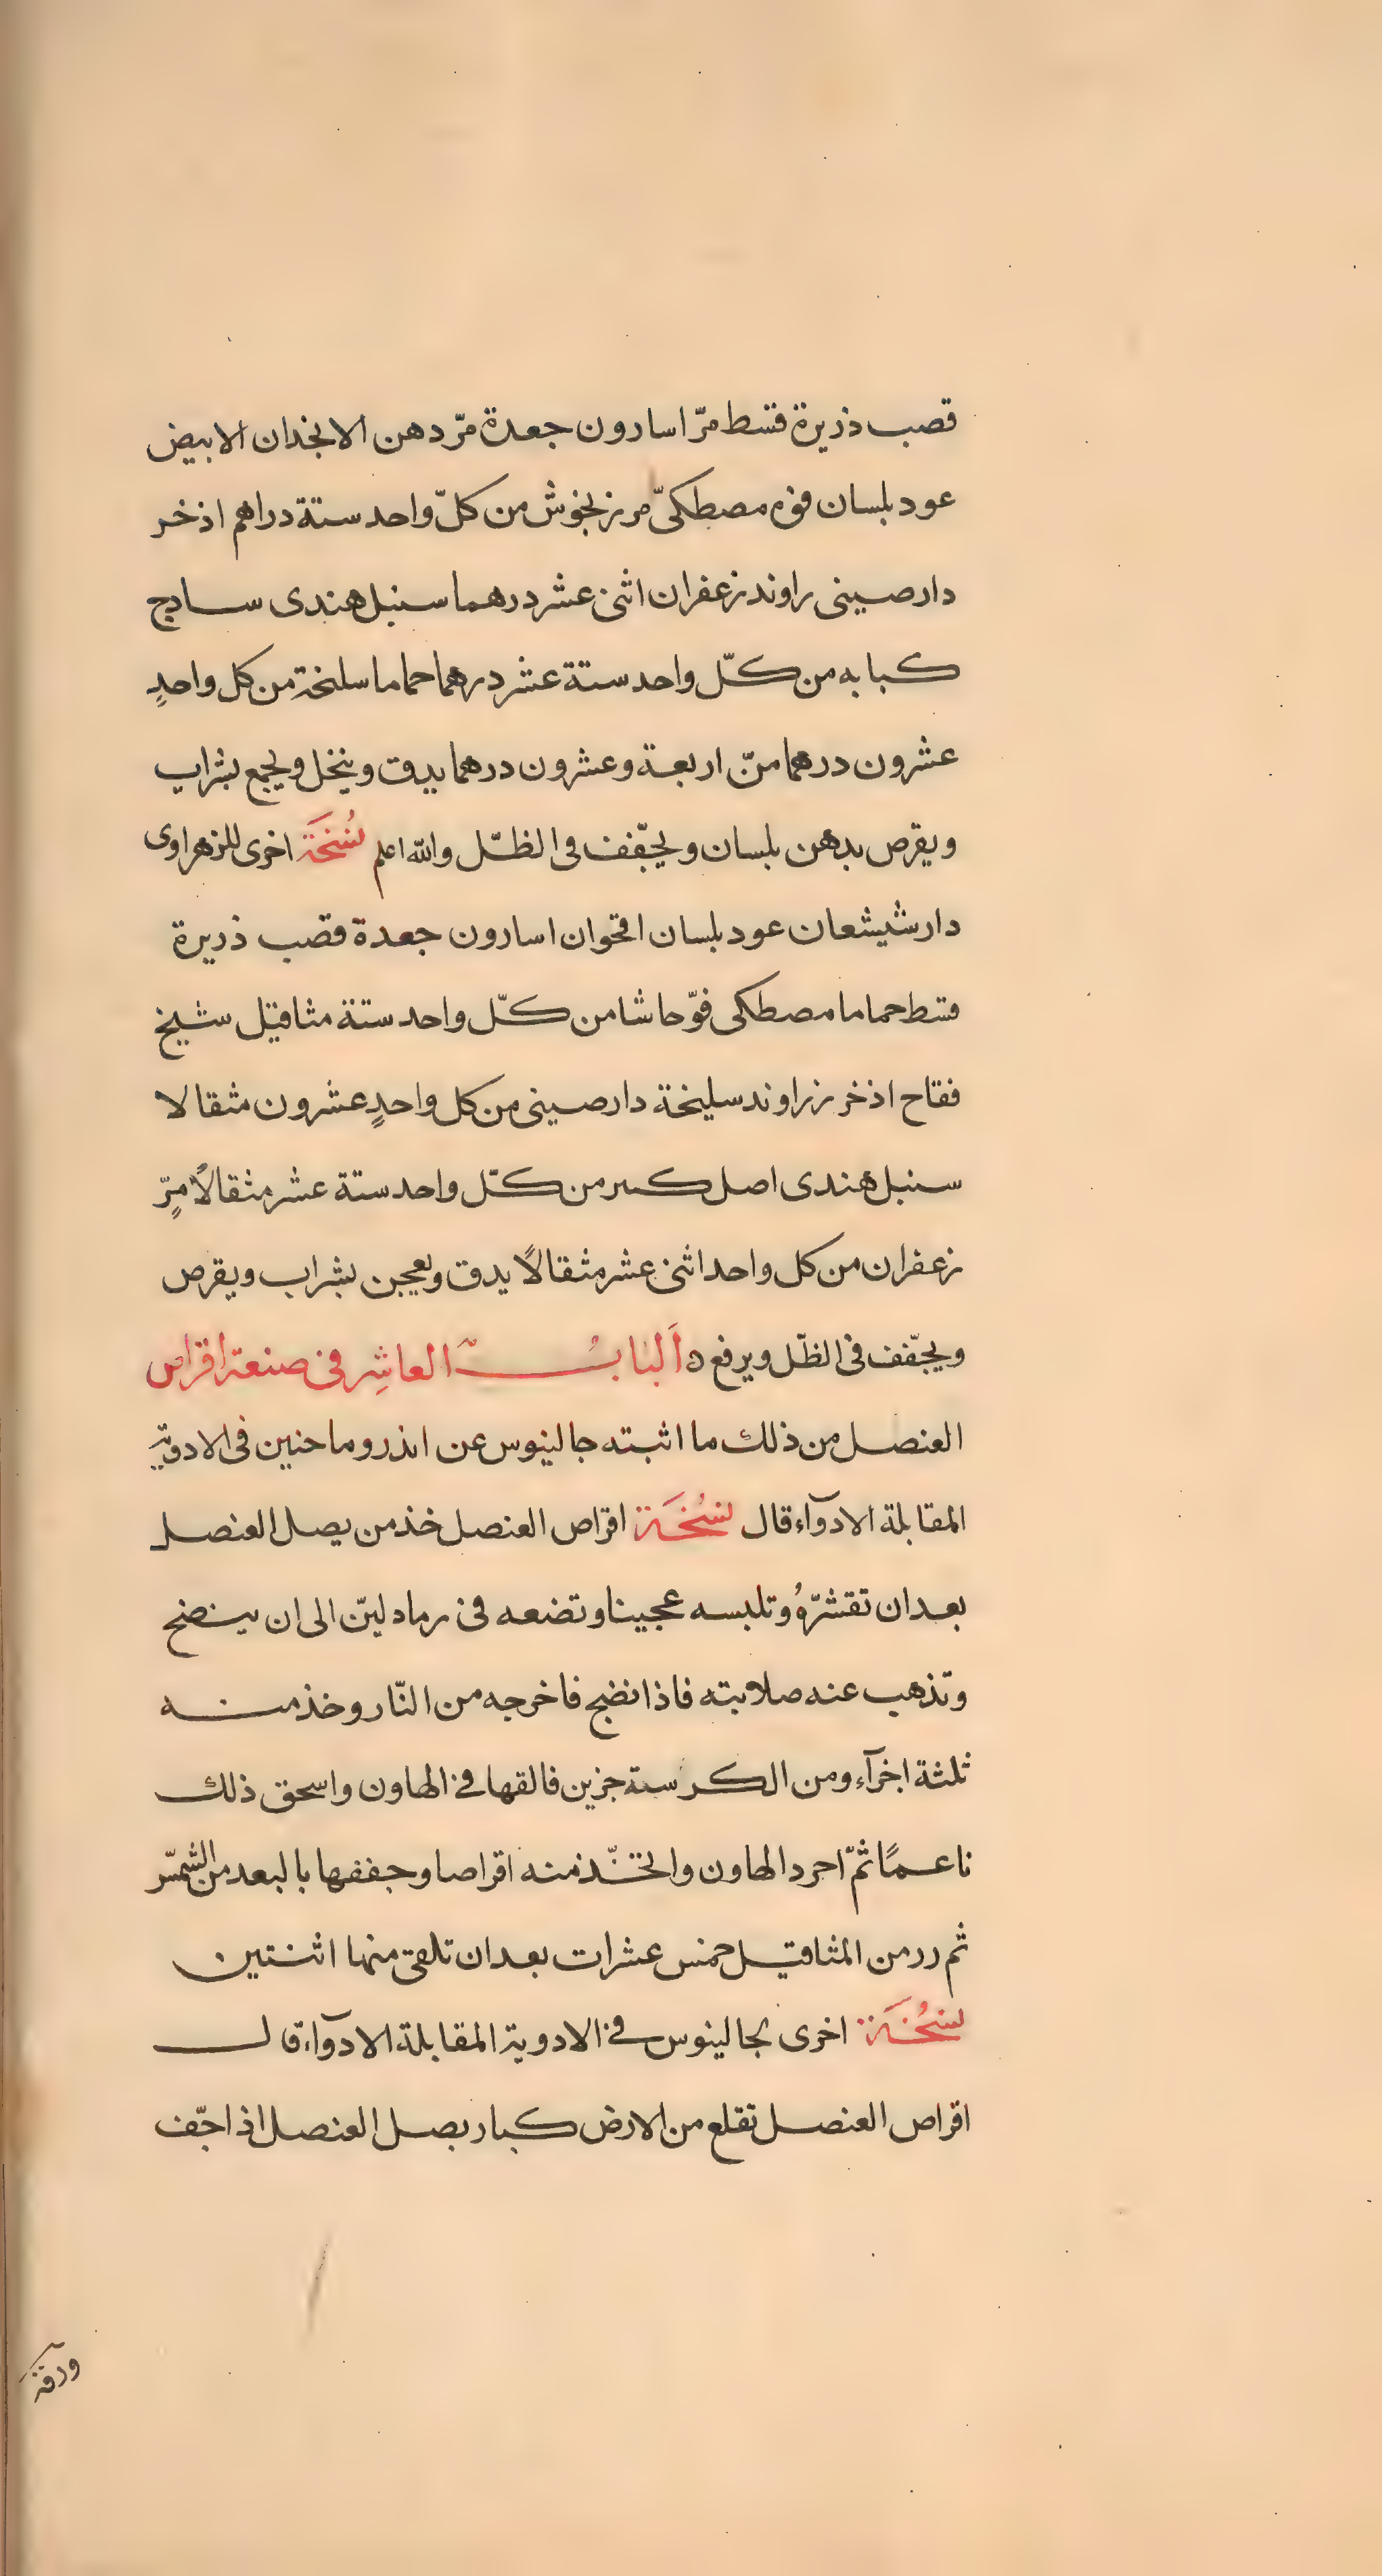 قصب ذريرة قسط مرّ اسارون جعدة مرّ دهن الانجذان الابيض
عود بلسان فوه مصطكىّ مرزنجوش من كلّ واحد ستة دراهم اذخر
دارصينى راوند زعفران اثنى عشر درهما سنبل هندى ساذج
كبابه من كلّ واحد ستة عشر درهما حماما سليخة من كل واحدٍ
عشرون درهما منّ اربعة وعشرون درهما يدق وينخل ويجمع بشراب
ويقرص بدهن بلسان ويجفّف فى الظلّ والله اعلم نُسْخَة اخرى للزهراوى
دارشيشعان عود بلسان اقحوان اسارون جعدة قصب ذريرة
قسط حماما مصطكى فوّ حاشا من كلّ واحد ستة مثاقيل شيخ
فقاح اذخر زراوند سليخة دارصينى من كل واحدٍ عشرون مثقالا
سنبل هندى اصل كبر من كلّ واحد ستة عشر مثقالًا مرّ
زعفران من كل واحد اثنى عشر مثقالًا يدق ويعجن بشراب ويقرص
ويجفّف فى الظلّ ويرفع ه اَلبَابُ العاشِر فى صنعة اقراص
العنصل من ذلك ما اثبته جالينوس عن اندروماحنين فى الادوية
المقابلة الادوآء قال نُسْخَة اقراص العنصل خذ من بصل العنصل
بعد ان تقشرّهُ وتلبسه عجينا وتضعه فى رماد ليّن الى ان ينضج
وتذهب عنه صلابته فاذا نضج فاخرجه من النّار وخذ منه
ثلثة اجزآء ومن الكرسنة جزين فالقها فى الهاون واسحق ذلك
ناعمًا ثمّ احرد الهاون واتخّذ منه اقراصا وجففها بالبعد من الشمسّ
ثم رد من المثاقيل خمس عشرات بعد ان تلقى منها اثنتين
نسُخَة اخرى لجالينوس فى الادوية المقابلة الادوآء قال
اقراص العنصل تقلع من الارض كبار بصل العنصل اذا جّف
ورقة